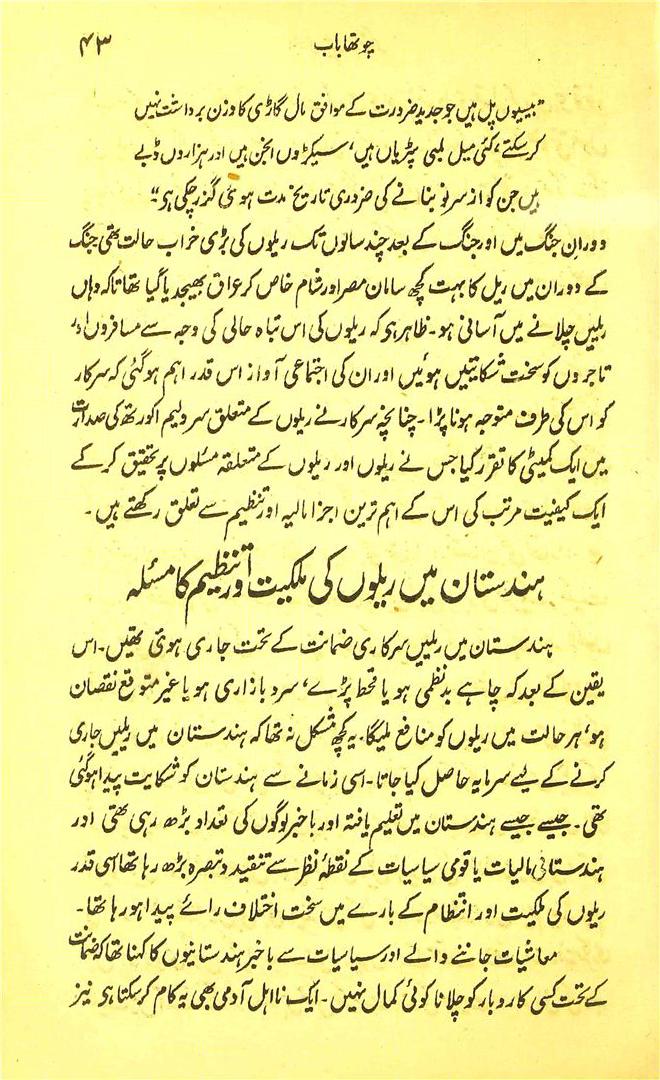 چوتھا باب ۴۳
"بیسیوں پل ہیں جو جدید ضرورت کے موافق مال گاڑی کا وزن برداشت نہیں
کر سکتے، کئی میل لمبی پٹریاں ہیں، سیکڑوں انجن ہیں اور ہزاروں ڈبے
ہیں جن کو از سر نو بنانے کی ضروری تاریخ مدت ہوئی گزر چکی ہی"
دوران جنگ میں اور جنگ کے بعد چند سالوں تک ریلوں کی بڑی خراب حالت تھی جنگ
کے دوران میں ریل کا بہت کچھ سامان مصر اور شام خاص کر عراق بھیجدیا گیا تھا تاکہ وہاں
ریلیں چلانے میں آسانی ہو۔ ظاہر ہی کہ ریلوں کی اس تباہ حالی کی وجہ سے مسافروں اور
تاجروں کو سخت شکایتیں ہوئیں اور ان کی اجتماعی آواز اس قدر اہم ہو گئی کہ سرکار
کو اس کی طرف متوجہ ہونا پڑا۔ چنانچہ سرکار نے ریلوں کے متعلق سر ولیم اکورتھ کی صدارت
میں ایک کمیٹی کا تقرر کیا جس نے ریلوں اور ریلوں کے متعلقہ مسئلوں پر تحقیق کر کے
ایک کیفیت مرتب کی اس کے اہم ترین اجزا مالیہ اور تنظیم سے تعلق رکھتے ہیں۔
ہندستان میں ریلوں کی ملکیت اور تنظیم کا مسئلہ
ہندستان میں ریلیں سرکاری ضمانت کے تحت جاری ہوئی تھیں۔ اس
یقین کے بعد کہ چاہے بدنظمی ہو یا قحط پڑے، سرد بازاری ہو یا غیر متوقع نقصان
ہو، ہر حالت میں ریلوں کو منافع ملیگا۔ یہ کچھ مشکل نہ تھا کہ ہندستان میں ریلیں جاری
کرنے کے لیے سرمایہ حاصل کیا جاتا۔ اسی زمانے سے ہندستان کو شکایت پیدا ہو گئی
تھی۔ جیسے جیسے ہندستان میں تعلیم یافتہ اور باخبر لوگوں کی تعداد بڑھ رہی تھی اور
ہندستانی مالیات یا قومی سیاسیات کے نقطۂ نظر سے تنقید و تبصرہ بڑھ رہا تھا اسی قدر
ریلوں کی ملکیت اور انتظام کے بارے میں سخت اختلاف رائے پیدا ہو رہا تھا۔
معاشیات جاننے والے اور سیاسیات سے باخبر ہندستانیوں کا کہنا تھا کہ ضمانت
کے تحت کسی کاروبار کو چلانا کوئی کمال نہیں۔ ایک نا اہل آدمی بھی یہ کام کر سکتا ہی نیز